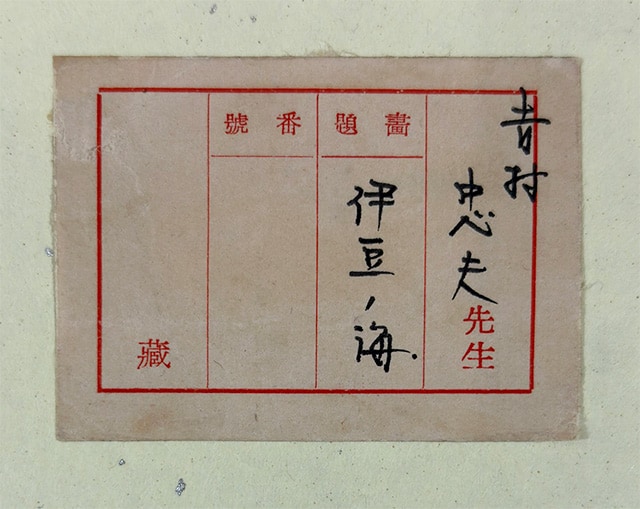 吉村
忠夫先生
畫題
伊豆ノ海.
番號
藏